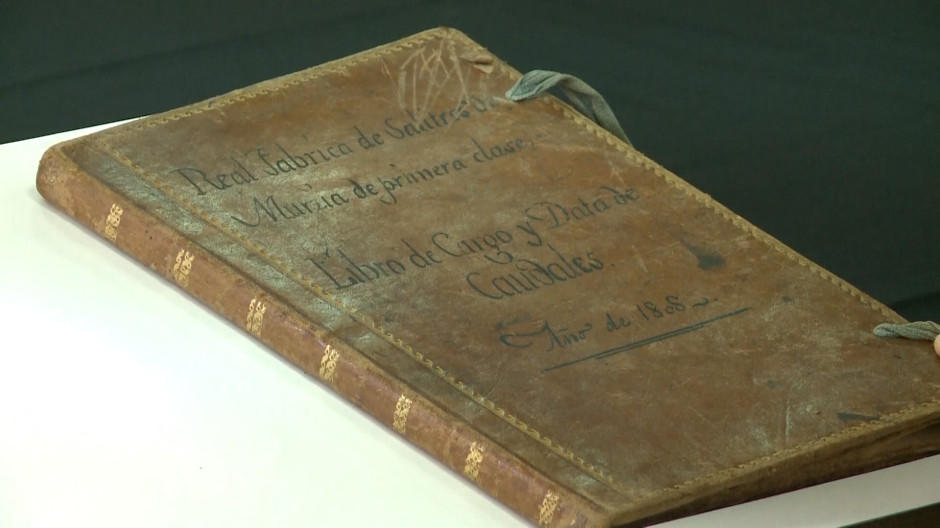 Real fabrica de Salitres de
Murcia de primera clase.
Libro de Cargo y Data de
Caudales.
Año de 1808